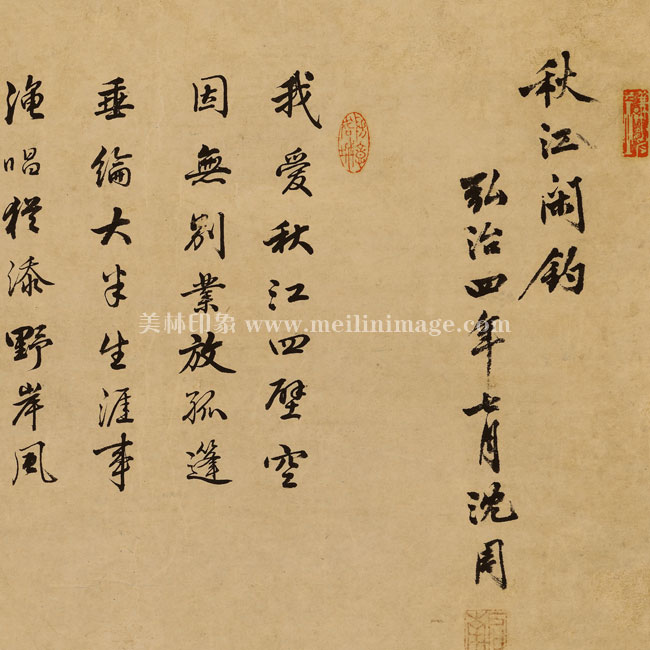 秋江閑釣
弘治四年七月沈周
我愛秋江四壁空
因無別業放孤篷
垂綸大半生涯事
漁唱猶添野岸風
美林印象 www.meilinimage.com